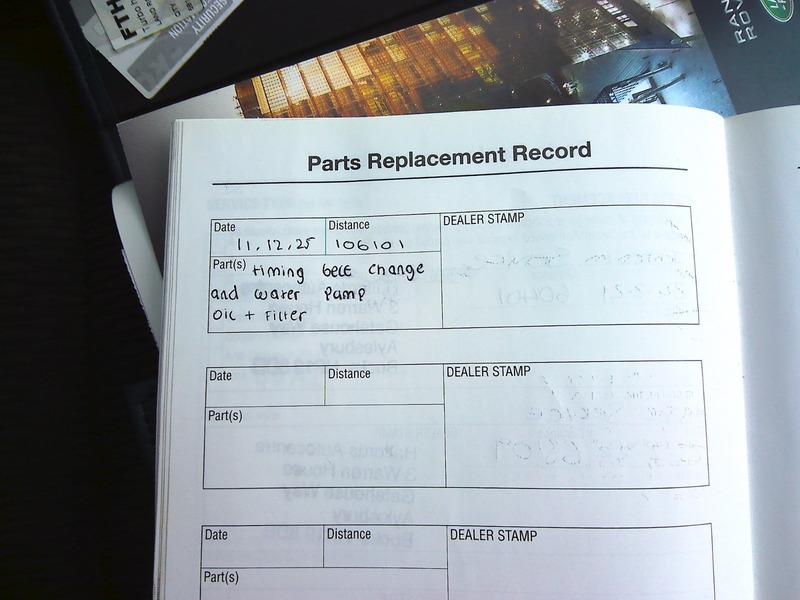 SECURITY
FTH
RANGE ROVER
Parts Replacement Record
Date
Distance
DEALER STAMP
11.12.25
106101
Part(s) timing belt change
and water Pamp
OIL + Filter
Date
Distance
DEALER STAMP
Part(s)
Date
Distance
DEALER STAMP
Part(s)